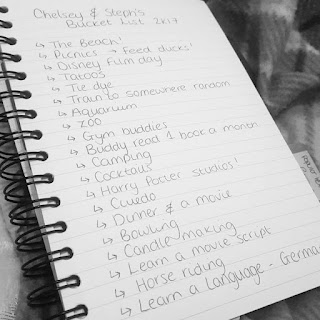 Chelsey & Steph's
Bucket List 2k17
↳ The Beach!
↳ Picnics → Feed ducks!
↳ Disney Film day
↳ Tatoos
↳ Tie dye
↳ Train to somewhere random
↳ Aquarium
↳ Zoo
↳ Gym buddies
↳ Buddy read 1 book a month
↳ Camping
↳ Cocktails
↳ Harry Potter Studios!
↳ Cluedo
↳ Dinner & a movie
↳ Bowling
↳ Candle making
↳ Learn a movie script
↳ Horse riding
↳ Learn a Language - Germa